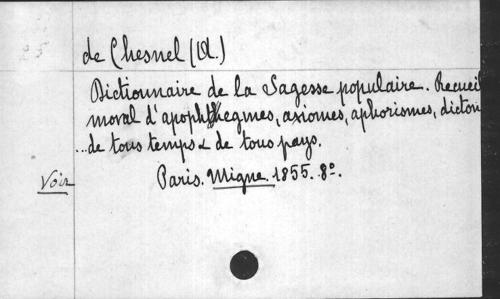 de Chesnel (A.)
Dictionnaire de la Sagesse populaire. Recueil
moral d'apophthegmes, axiomes, aphorismes, dicton
...de tous temps & de tous pays.
Voir
Paris. Migne. 1855. 8°.